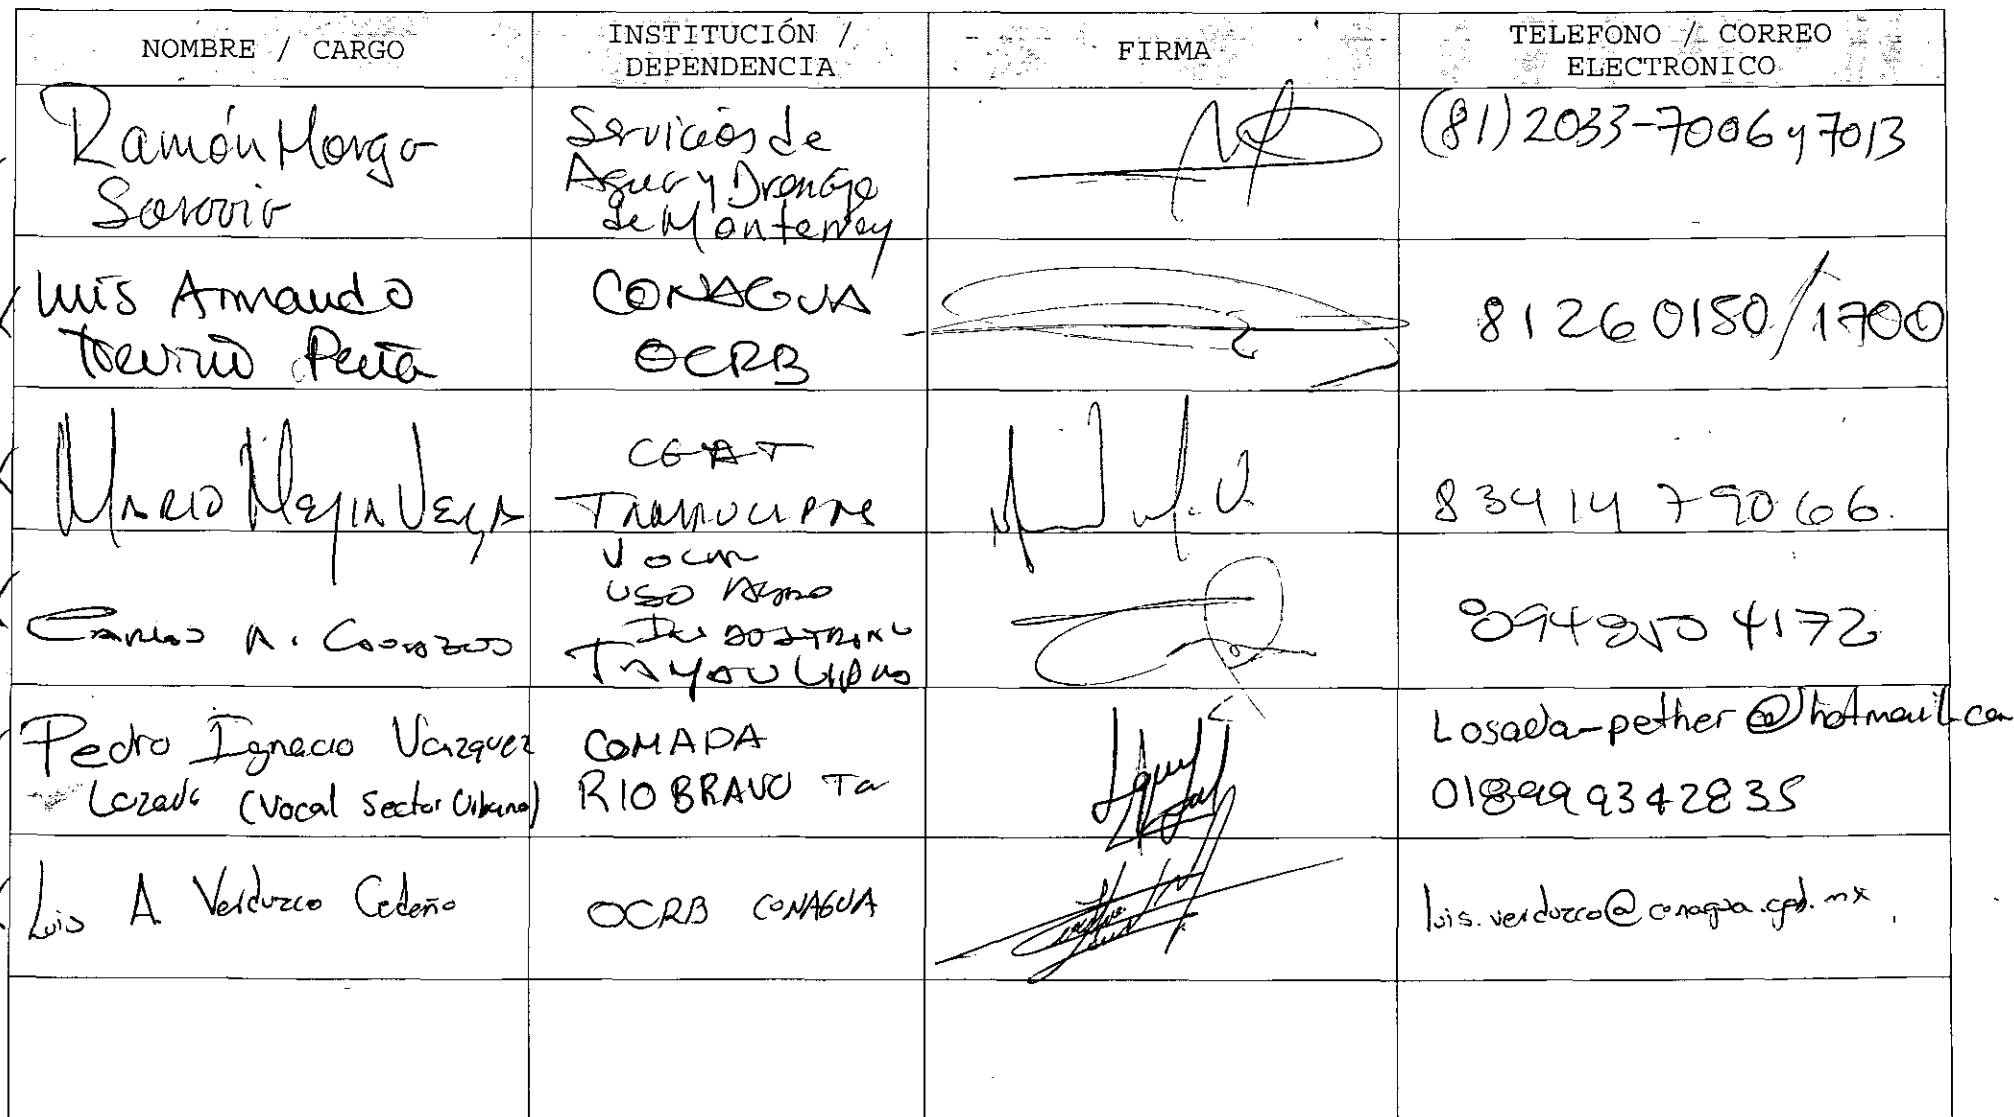 NOMBRE / CARGO
INSTITUCIÓN /
DEPENDENCIA
FIRMA
TELEFONO / CORREO
ELECTRONICO
Ramón Monga
Servicios de
Agua y Drenaje
de Monterrey
(81) 2033-7006 y 7013
Luis Armando
Treviño Peña
CONAGUA
OCRB
81260150/1700
Mario Mejia Vega
CEAT
Tamaulipas
834 14 79066.
Carlos A.
Vocal
uso
Tamaulipas
4172
Pedro Ignacio Vazquez
Lozada (Vocal Sector Urbano)
COMAPA
RIO BRAVO Ta
Losada-pether@hotmail.com
018999342835
Luis A Verduzco Cedeño
OCRB CONAGUA
luis.verduzco@conagua.gob.mx